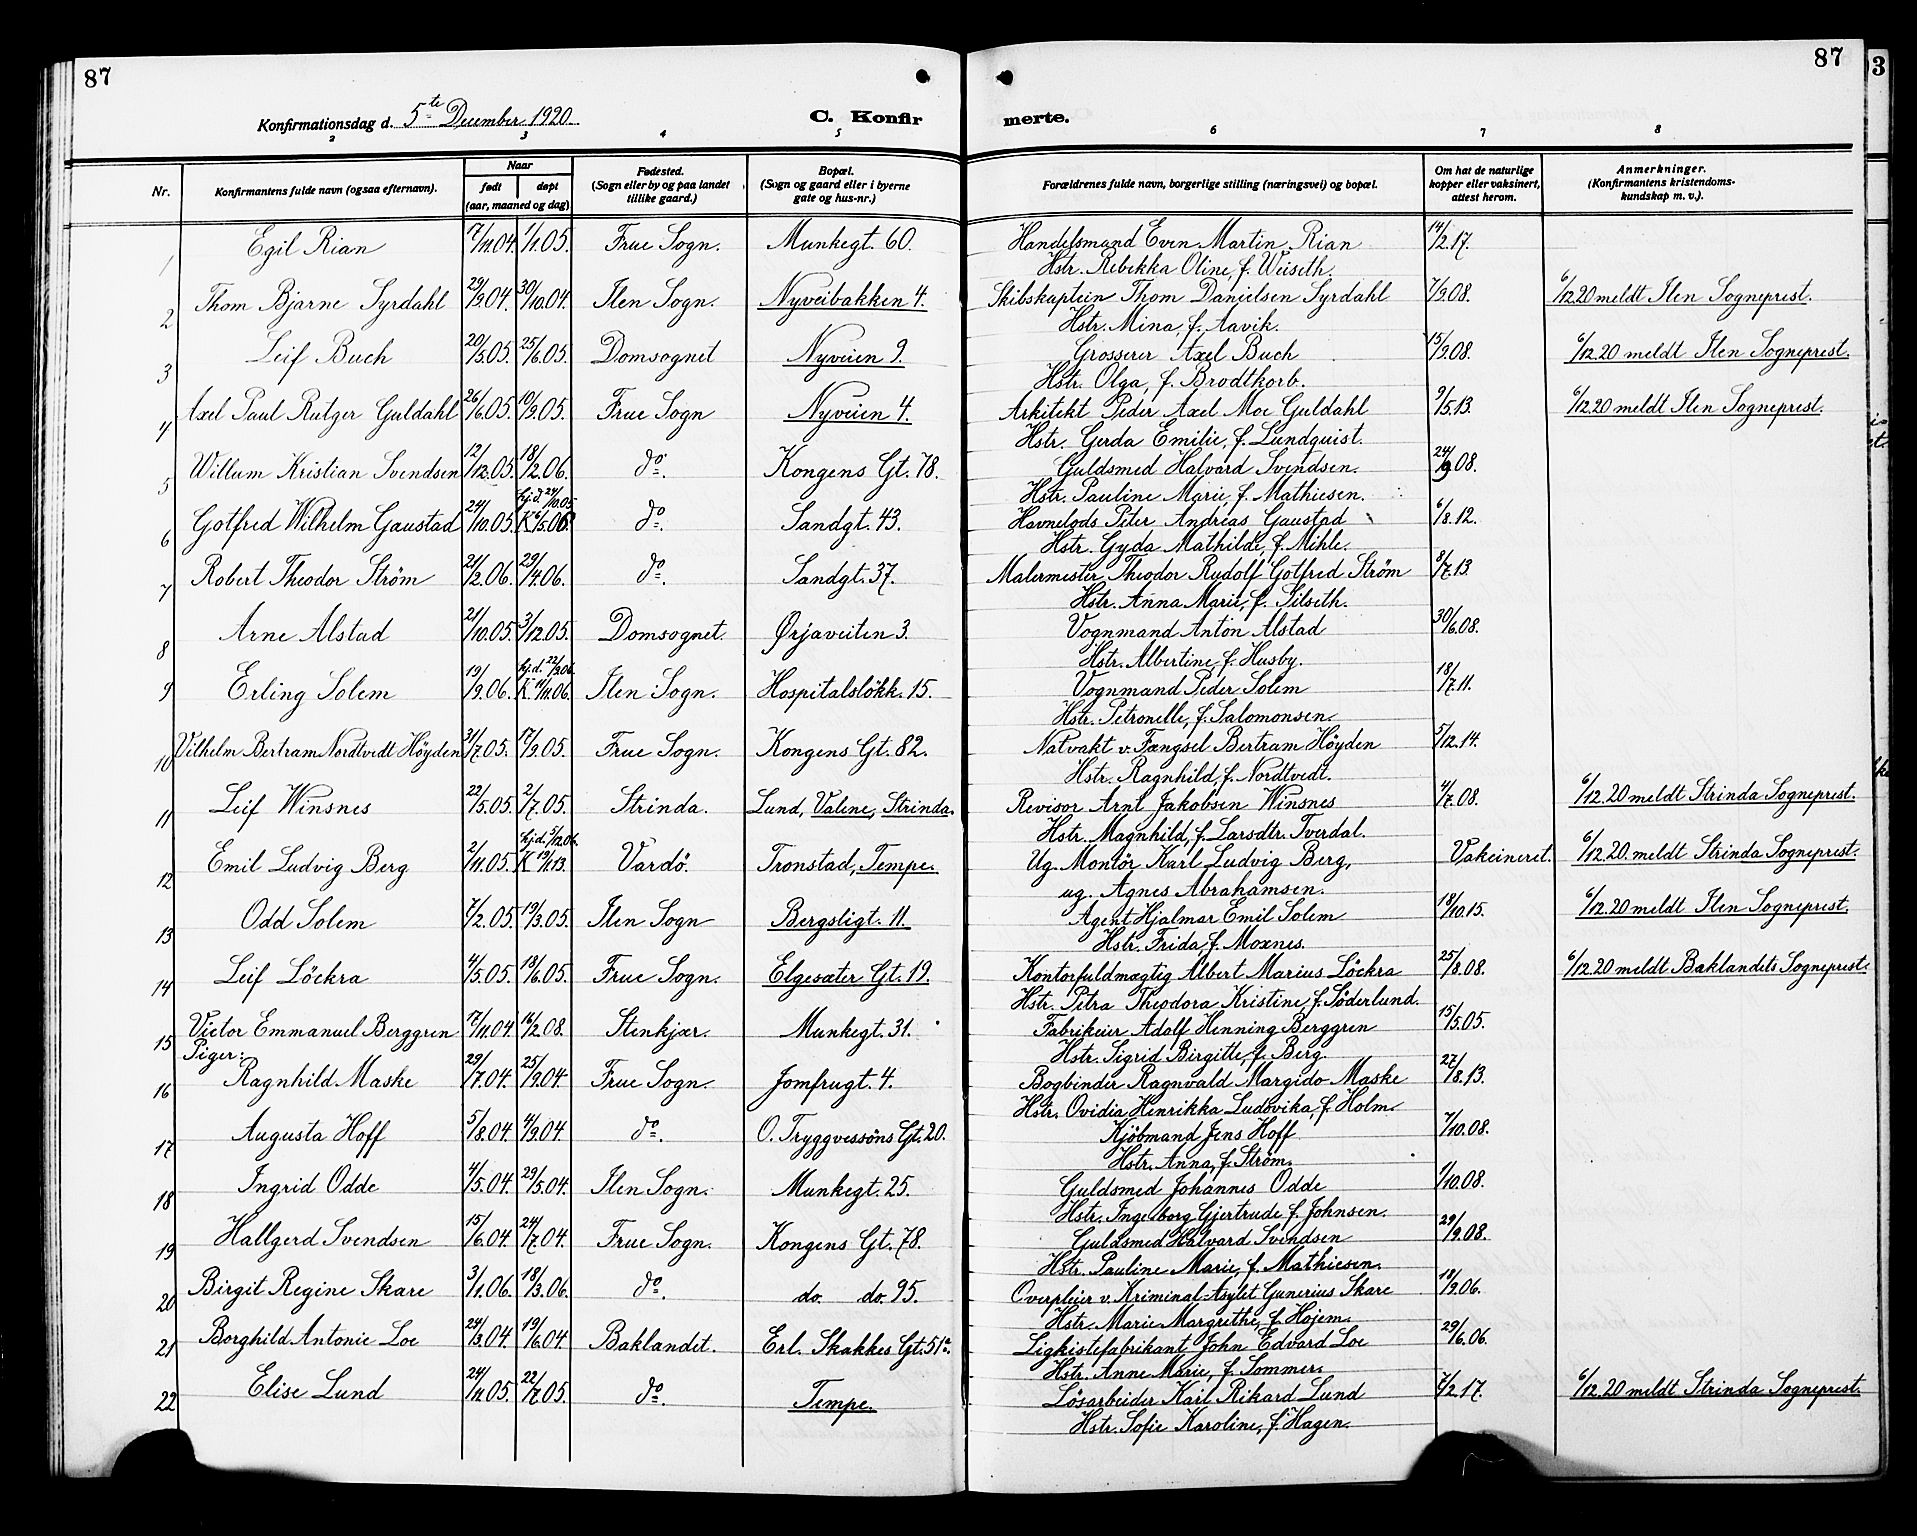 87
87
3
Konfirmationsdag d. 5te December 1920.
C. Konfirmerte.
2 3 4 5 6 7 8
Nr.
Konfirmantens fulde navn (ogsaa efternavn).
Naar
født døpt
(aar, maaned og dag)
Fødested.
(Sogn eller by og paa landet
tillike gaard.)
Bopæl.
(Sogn og gaard eller i byerne
gate og hus-nr.)
Forældrenes fulde navn, borgerlige stilling (næringsvei) og bopæl.
Om hat de naturlige
kopper eller vaksinert,
attest herom.
Anmerkninger.
(Konfirmantens kristendoms-
kundskap m. v.).
1 Egil Rian 7/11.04. 1/1.05. Frue Sogn. Munkegt. 60. Handelsmand Even Martin Rian 14/2.17.
Hstr. Rebekka Oline, f. Weiseth.
2 Thom Bjarne Syrdahl 29/9.04. 30/10.04. Ilen Sogn. Nyveibakken 4. Skibskaptein Thom Danielsen Syrdahl 7/9.08. 6/12.20 meldt Ilen Sogneprest.
Hstr. Mina, f. Aavik.
3 Leif Buch 20/5.05. 25/6.05. Domsognet Nyveien 9. Grosserer Axel Buch 15/9.08. 6/12.20 meldt Ilen Sogneprest.
Hstr. Olga, f. Brodtkorb.
4 Axel Paul Rutger Guldahl 26/6.05. 10/9.05. Frue Sogn Nyveien 4. Arkitekt Peder Axel Moe Guldahl 9/5.13. 6/12.20 meldt Ilen Sogneprest.
Hstr. Gerda Emilie, f. Lundquist.
5 Willum Kristian Svendsen 12/12.05. 18/2.06. do. Kongens Gt. 78. Guldsmed Halvard Svendsen. 24/9.08.
Hstr. Pauline Marie, f. Mathiesen.
hj.d. 24/10.05
6 Gotfred Wilhelm Gaustad 24/10.05. K 6/5.06 do. Sandgt. 43. Havnelods Peter Andreas Gaustad 6/8.12.
Hstr. Gyda Mathilde, f. Mihle.
7 Robert Theodor Ström 21/2.06. 29/4.06. do. Sandgt. 37. Malermester Theodor Rudolf Gotfred Ström 8/7.13.
Hstr. Anna Marie, f. Silseth.
8 Arne Alstad 21/10.05. 3/12.05. Domsognet. Ørjaveiten 3. Vognmand Anton Alstad 30/6.08.
Hstr. Albertine, f. Husby.
hj.d. 22/9.06.
9 Erling Solem 19/9.06. K 11/11.06. Ilen Sogn. Hospitalslökk. 15. Vognmand Peder Solem 18/7.11.
Hstr. Petronelle, f. Salomonsen.
10 Vilhelm Bertram Nordtvedt Höyden 31/7.05. 17/9.05. Frue Sogn. Kongens Gt. 82. Natvakt v. Fængsel Bertram Höyden 5/12.14.
Hstr. Ragnhild, f. Nordtvedt.
11 Leif Winsnes 22/5.05. 2/7.05. Strinda. Lund, Valene, Strinda. Revisor Arnt Jakobsen Winsnes 4/7.08. 6/12.20 meldt Strinda Sogneprest.
Hstr. Magnhild, f. Larsdtr. Tverdal.
hj.d. 5/12.06.
12 Emil Ludvig Berg 2/11.05. K 19/1.13. Vardö. Tronstad, Tempe. Ug. Montör Karl Ludvig Berg, Vakcineret. 6/12.20. meldt Strinda Sogneprest.
ug. Agnes Abrahamsen.
13 Odd Solem 7/2.05. 19/3.05. Ilen Sogn Bergsligt. 11. Agent Hjalmar Emil Solem 18/10.15. 6/12.20 meldt Ilen Sogneprest.
Hstr. Frida, f. Moxnes.
14 Leif Löckra 4/5.05. 18/6.05. Frue Sogn. Elgesæter Gt. 19. Kontorfuldmægtig Albert Marius Löckra 25/8.08. 6/12.20 meldt Baklandets Sogneprest.
Hstr. Petra Theodora Kristine, f. Söderlund.
15 Victor Emmanuel Berggren 7/11.04 16/2.08. Stenkjær. Munkegt. 31. Fabrikeier Adolf Henning Berggren 15/5.05.
Hstr. Sigrid Birgitte, f. Berg.
Piger:
16 Ragnhild Maske 29/7.04. 25/9.04. Frue Sogn. Jomfrugt. 4. Bogbinder Ragnvald Margido Maske 27/8.13.
Hstr. Ovidia Henrikka Ludovika, f. Holm.
17 Augusta Hoff 5/8.04. 4/9.04. do. O. Tryggvessöns Gt. 20. Kjöbmand Jens Hoff 7/10.08.
Hstr. Anna, f. Ström.
18 Ingrid Odde 4/5.04. 29/5.04. Ilen Sogn. Munkegt. 25. Guldsmed Johannes Odde 1/10.08.
Hstr. Ingeborg Gjertrude f. Johnsen.
19 Hallgerd Svendsen 15/6.04. 24/7.04. Frue Sogn. Kongens Gt. 78. Guldsmed Halvard Svendsen 29/9.08.
Hstr. Pauline Marie, f. Mathiesen.
20 Birgit Regine Skare 3/1.06. 18/3.06. do. do. do. 95. Overpleier v. Kriminal-Asylet Gunerius Skare 18/9.06.
Hstr. Marie Margrethe, f. Højem.
21 Borghild Antonie Loe 24/3.04. 19/6.04. Baklandet. Erl. Skakkes Gt. 51a. Ligkistefabrikant John Edvard Loe 29/6.06.
Hstr. Anne Marie, f. Sommer.
22 Elise Lund 24/11.05. 22/7.05. do. Tempe. Lösarbeider Karl Rikard Lund 7/2.17. 6/12.20 meldt Strinda Sogneprest.
Hstr. Sofie Karoline, f. Hagen.